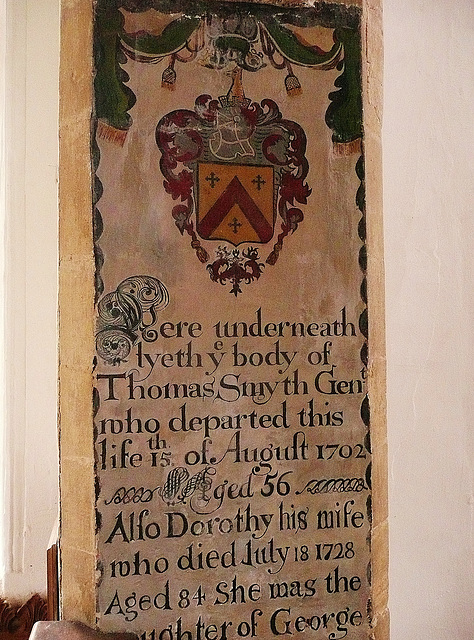 Here underneath
lyeth yᵉ body of
Thomas Smyth Genᵗ
who departed this
life 15ᵗʰ of August 1702
Aged 56
Also Dorothy his wife
who died July 18 1728
Aged 84 She was the
ughter of George